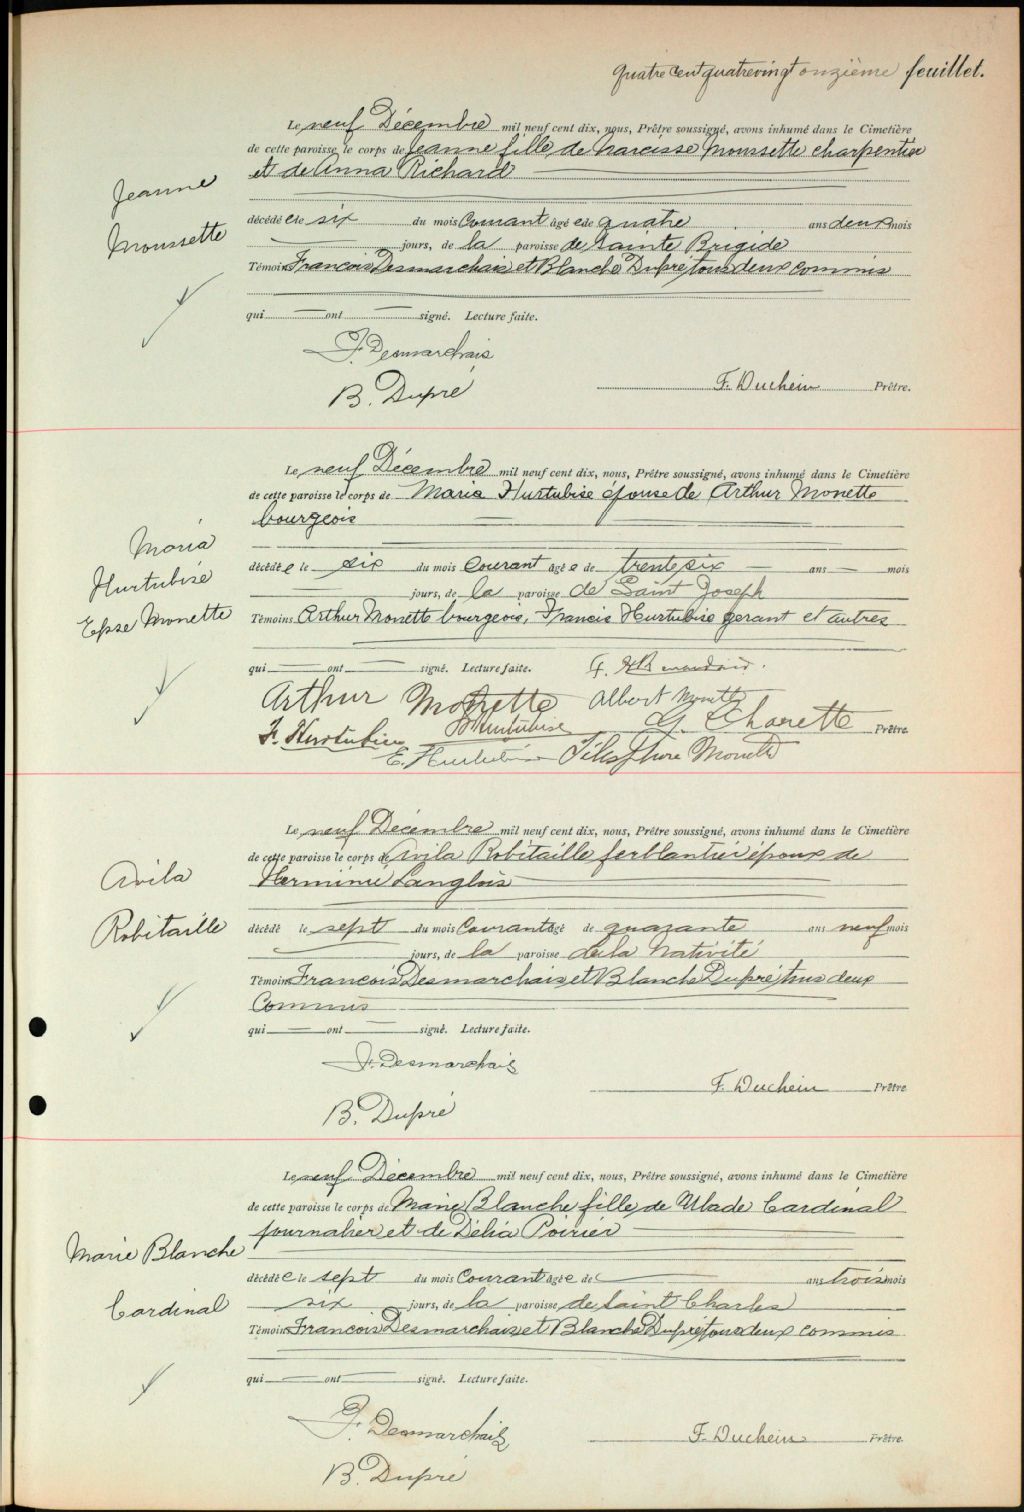 Quatre cent quatrevingt onzième feuillet.
Le neuf Décembre mil neuf cent dix, nous, Prêtre soussigné, avons inhumé dans le Cimetière
de cette paroisse le corps de Jeanne fille de Narcisse Moussette charpentier
et de Anna Richard
Jeanne
Moussette
décédé e le six du mois Courant âgé e de quatre ans deux mois
jours, de la paroisse de Sainte Brigide
Témoins Francois Desmarchais et Blanche Dupré tous deux commis
qui ont signé. Lecture faite.
F. Desmarchais
B. Dupré
F. Duchein Prêtre.
Le neuf Décembre mil neuf cent dix, nous, Prêtre soussigné, avons inhumé dans le Cimetière
de cette paroisse le corps de Maria Hurtubise épouse de Arthur Monette
bourgeois
Maria
Hurtubise
Epse Monette
décédé e le six du mois Courant âgé e de trente six ans mois
jours, de la paroisse de Saint Joseph
Témoins Arthur Monette bourgeois, Francis Hurtubise gerant et autres
qui ont signé. Lecture faite.
Arthur Monette Albert Monette
F. Hurtubise Hurtubise Charette Prêtre.
E. Hurtubise Télesphore Monette
Le neuf Décembre mil neuf cent dix, nous, Prêtre soussigné, avons inhumé dans le Cimetière
de cette paroisse le corps de Avila Robitaille ferblantier époux de
Herminie Langlois
Avila
Robitaille
décédé le sept du mois Courant âgé de quarante ans neuf mois
jours, de la paroisse de la Nativité
Témoins Francois Desmarchais et Blanche Dupré tous deux
Commis
qui ont signé. Lecture faite.
F. Desmarchais
B. Dupré
F. Duchein Prêtre
Le neuf Décembre mil neuf cent dix, nous, Prêtre soussigné, avons inhumé dans le Cimetière
de cette paroisse le corps de Marie Blanche fille de Ulade Cardinal
journalier et de Délia Poirier
Marie Blanche
Cardinal
décédé e le sept du mois Courant âgé e de ans trois mois
six jours, de la paroisse de Saint Charles
Témoins Francois Desmarchais et Blanche Dupré tous deux commis
qui ont signé. Lecture faite.
F. Desmarchais
B. Dupré
F. Duchein Prêtre.